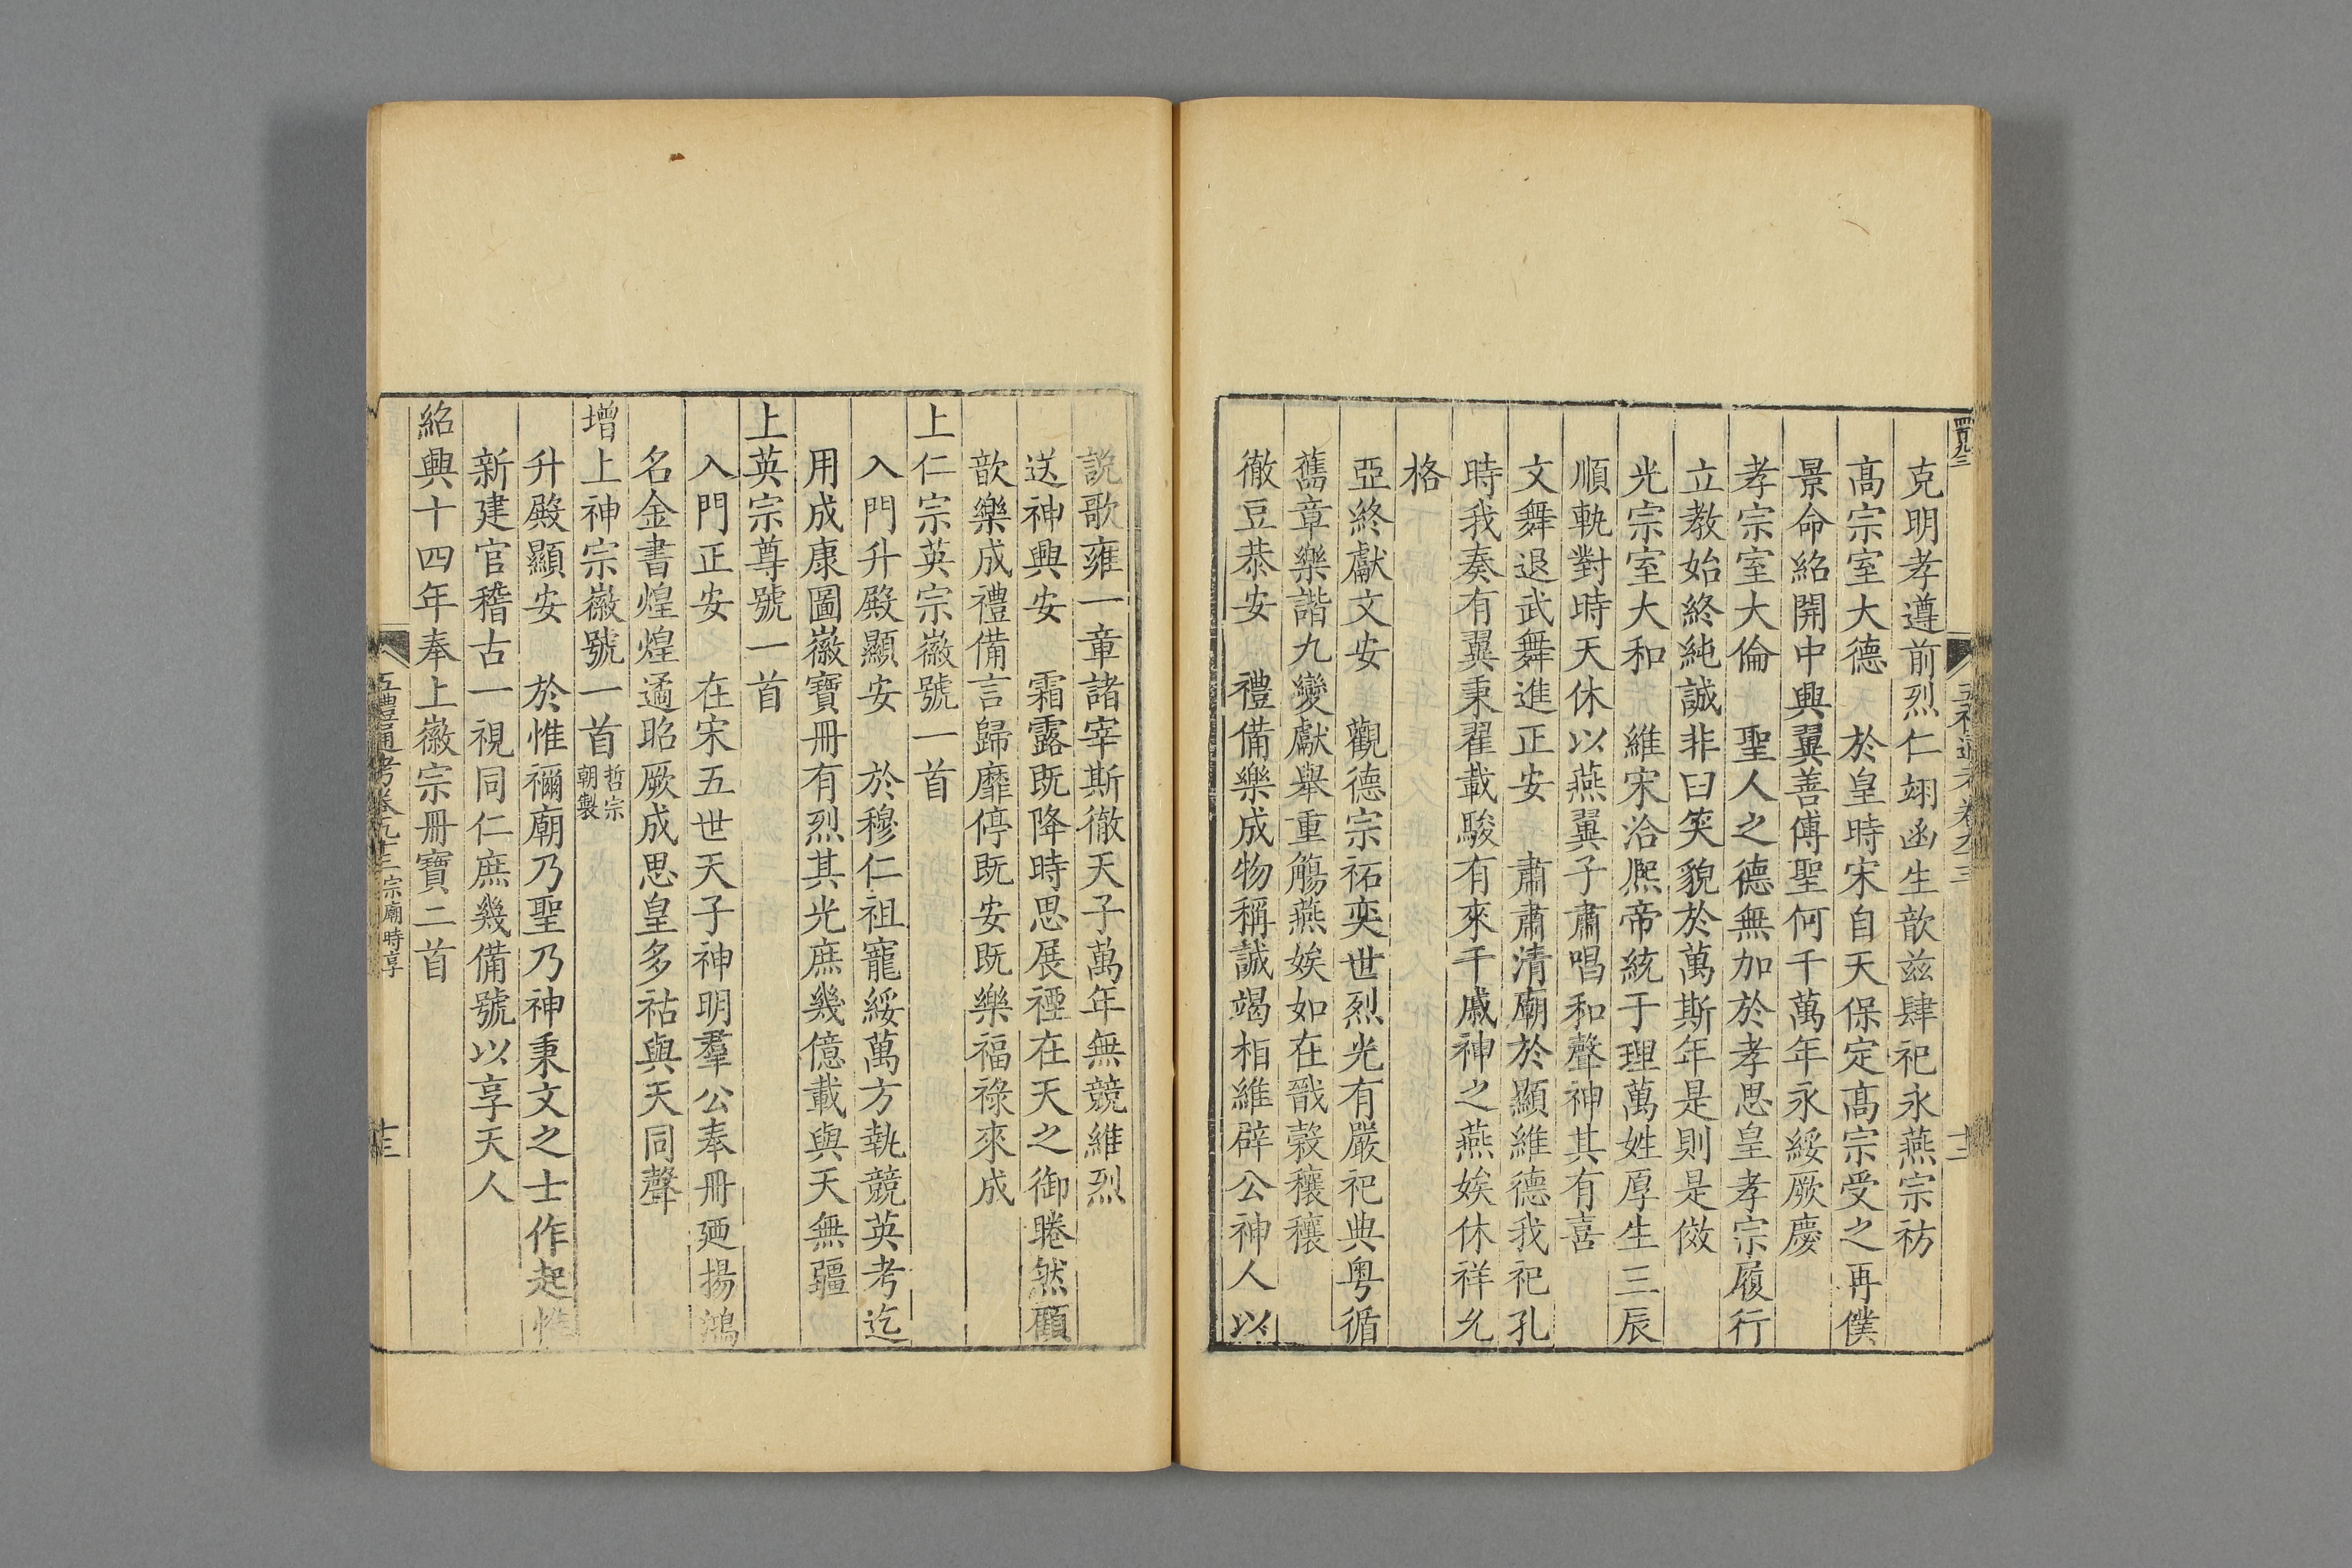 克明孝遵前烈仁翊函生歆兹肆祀永燕宗祊
髙宗室大德　於皇時宋自天保定髙宗受之再僕
景命紹開中興翼善傅聖何千萬年永綏厥慶
孝宗室大倫　聖人之德無加於孝思皇孝宗履行
立教始終純誠非曰笑貌於萬斯年是則是傚
光宗室大和　維宋洽熈帝統于理萬姓厚生三辰
順軌對時天休以燕翼子肅唱和聲神其有喜
文舞退武舞進正安　肅肅清廟於顯維德我祀孔
時我奏有翼秉翟載駿有來干戚神之燕娭休祥允
格
亞終獻文安　觀德宗祏奕世烈光有嚴祀典粤循
舊章樂諧九變獻舉重觴燕娭如在戩穀穰穰
徹豆恭安　禮備樂成物稱誠竭相維辟公神人以
說歌雍一章諸宰斯徹天子萬年無競維烈
送神興安　霜露既降時思展禋在天之御睠然顧
歆樂成禮備言歸靡停既安既樂福祿來成
上仁宗英宗徽號一首
入門升殿顯安　於穆仁祖寵綏萬方執競英考迄
用成康圖徽寶冊有烈其光庶幾億載與天無疆
上英宗尊號一首
入門正安　在宋五世天子神明羣公奉冊廼揚鴻
名金書煌煌遹昭厥成思皇多祜與天同聲
增上神宗徽號一首哲宗朝製
升殿顯安　於惟禰廟乃聖乃神秉文之士作起惟
新建官稽古一視同仁庶幾備號以享天人
紹興十四年奉上徽宗冊寶二首
五禮通考卷九十三宗廟時享
十三